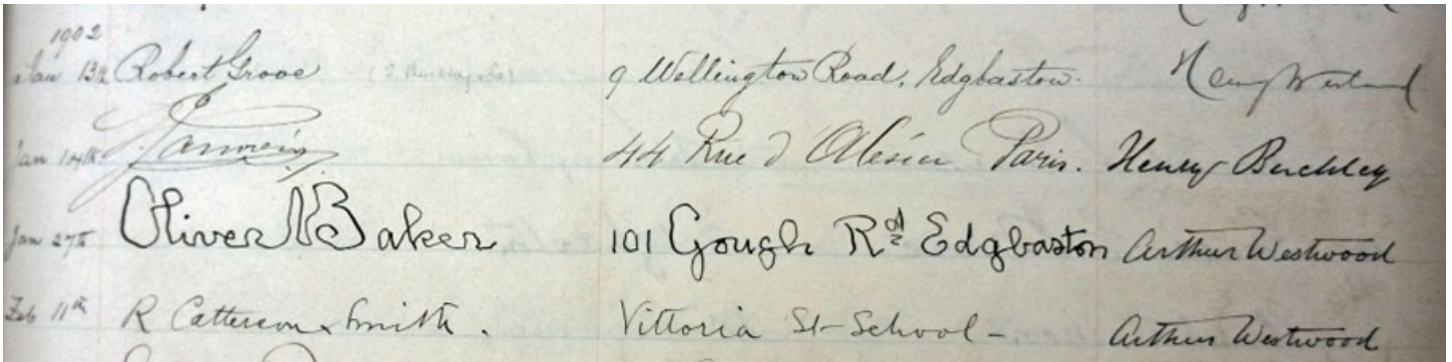 1902
Jan 13th Robert Grove 9 Wellington Road, Edgbaston.
Jan 14th 44 Rue d'Alésia Paris. Henry Buckley
Jan 27th Oliver Baker 101 Gough Rd Edgbaston Arthur Westwood
Feb 11th R Catterson Smith. Vittoria St School - Arthur Westwood